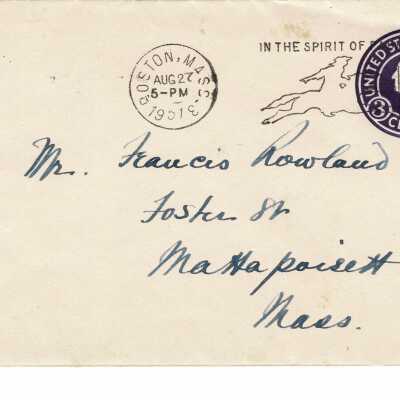 BOSTON, MASS.
AUG 27
5-PM
1951
IN THE SPIRIT OF
UNITED ST
3 C
Mr. Francis Rowland
Foster St
Mattapoisett
Mass.